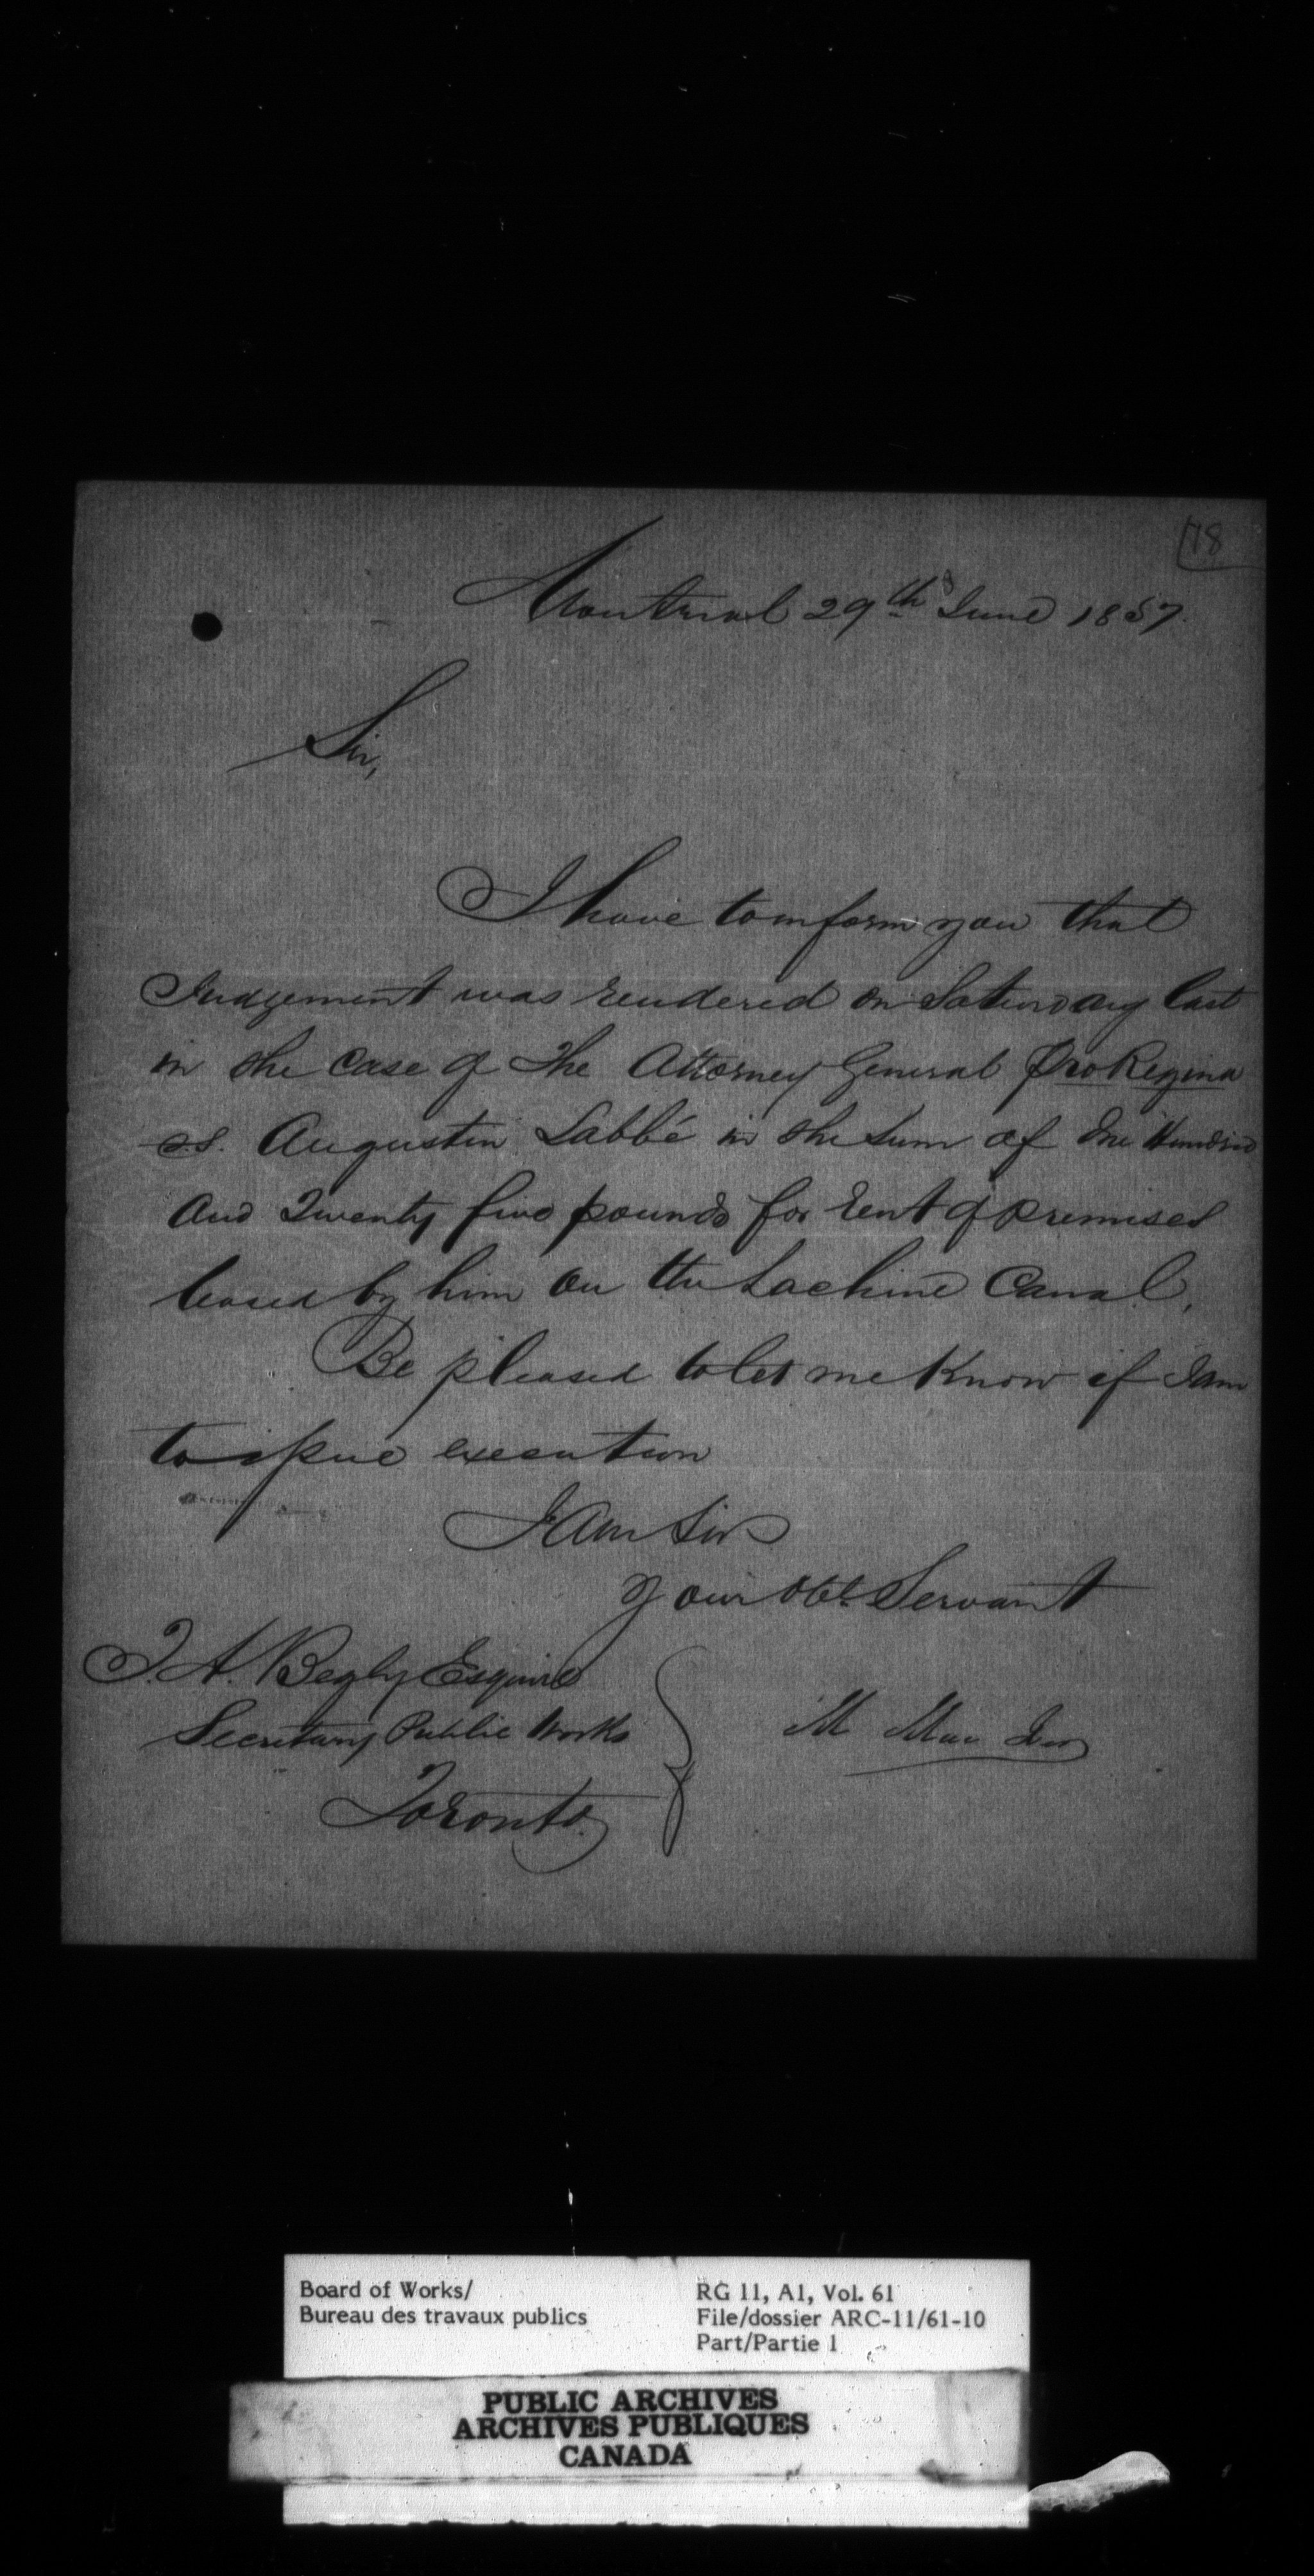 78
Montreal 29th June 1857.
Sir,
I have to inform you that
Judgement was rendered on Saturday last
in the case of The Attorney General Pro Regina
vs. Augustin Labbé in the Sum of One Hundred
And Twenty five pounds for rent of premises
leased by him on the Lachine Canal.
Be pleased to let me Know if I am
to issue execution
I Am Sir
your Obt. Servant
T. A. Begly Esquire
Secretary Public Works
Toronto.
M
Board of Works/
Bureau des travaux publics
RG 11, A1, Vol. 61
File/dossier ARC-11/61-10
Part/Partie 1
PUBLIC ARCHIVES
ARCHIVES PUBLIQUES
CANADA